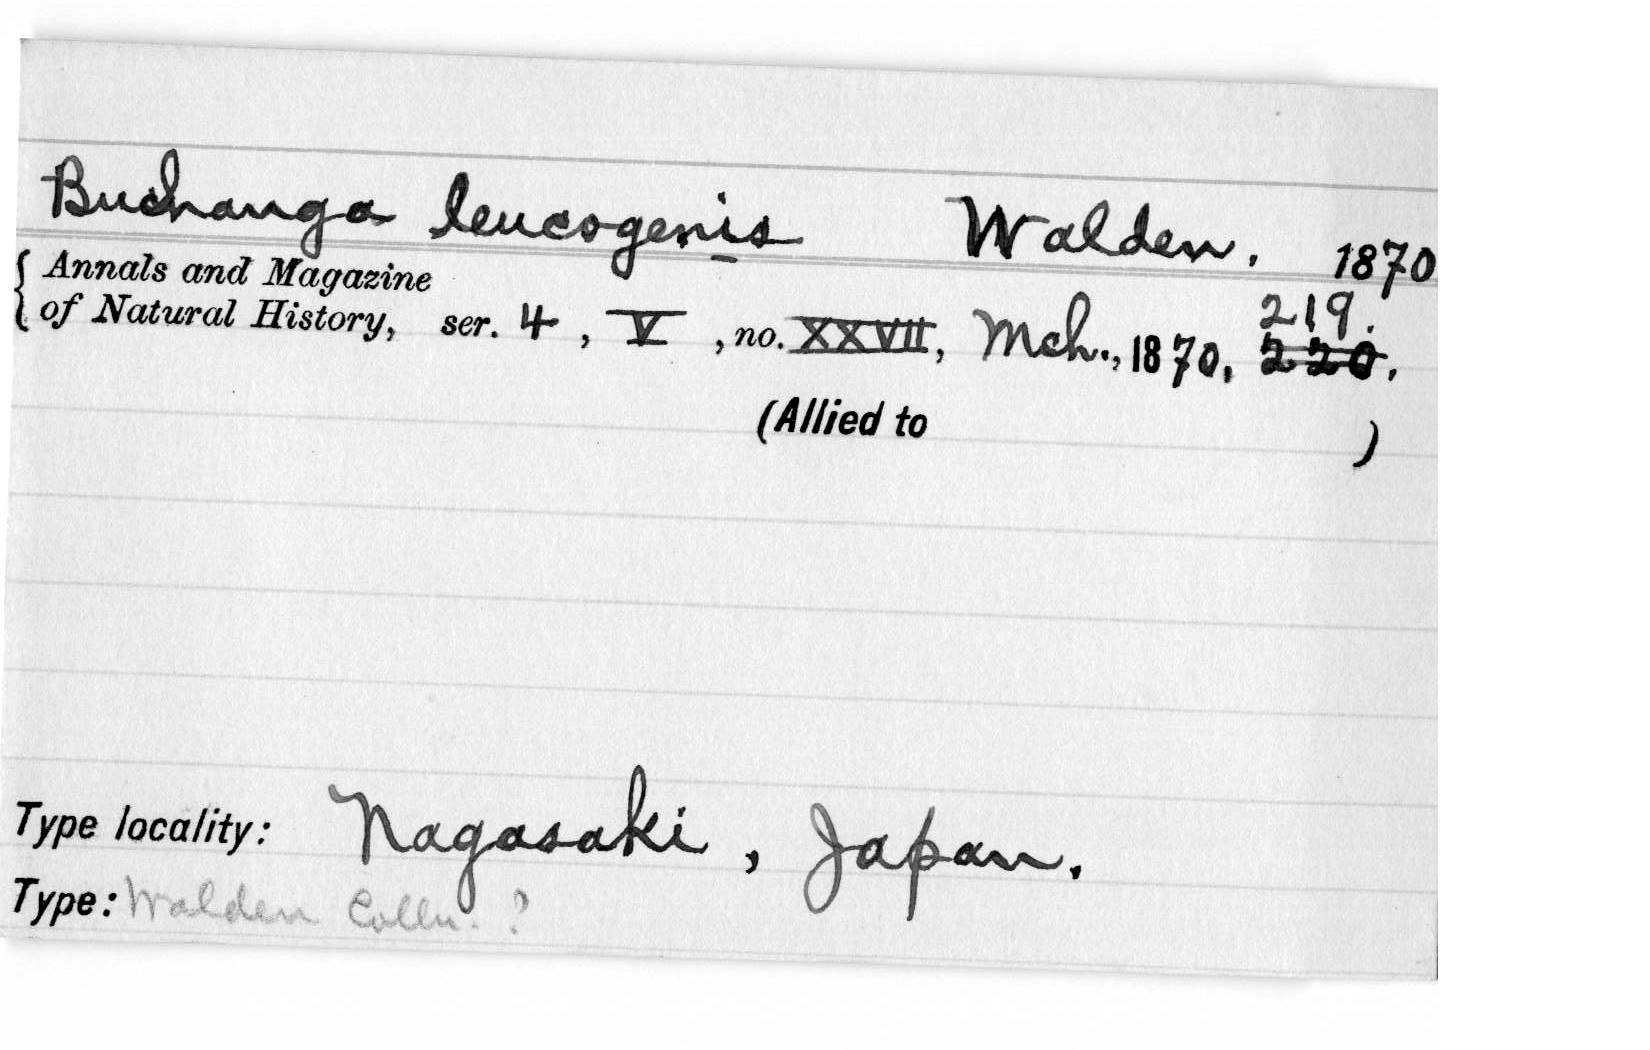 Buchanga leucogenis Walden. 1870
Annals and Magazine
of Natural History, ser. 4, V, no. XXVII, Mch., 1870, 220.
219.
(Allied to )
Type locality: Nagasaki, Japan.
Type: Walden Colln. ?